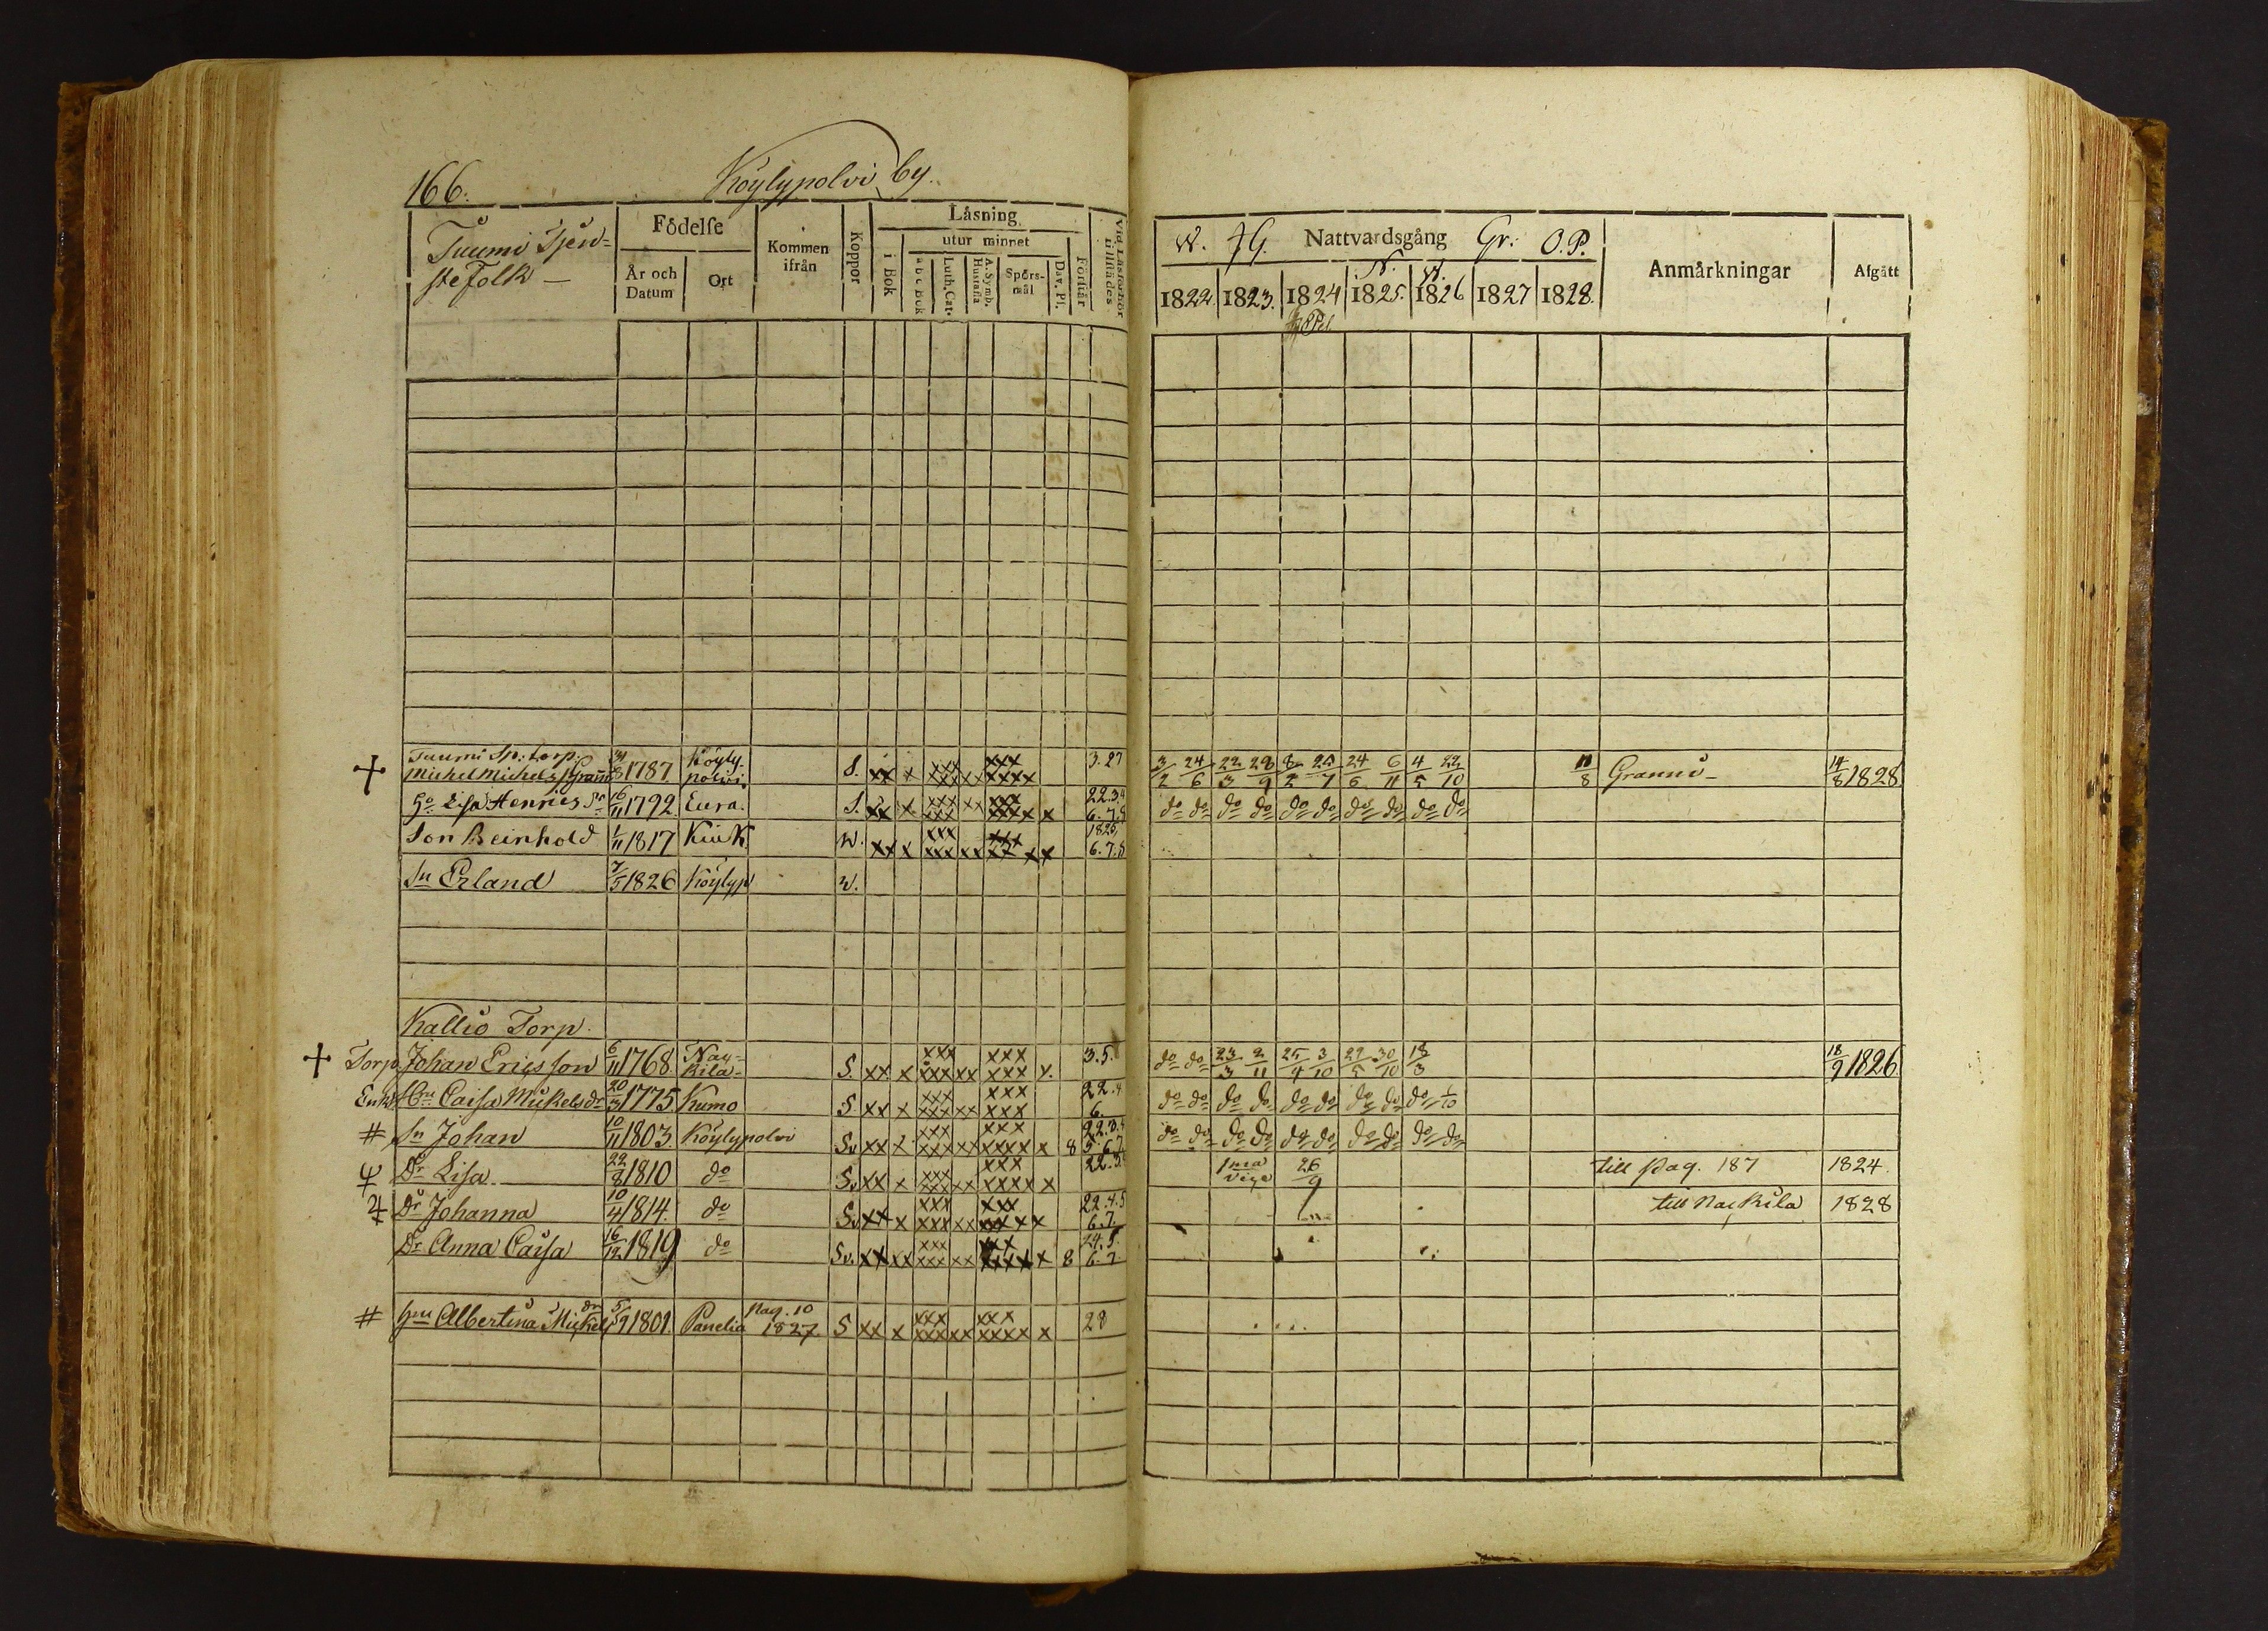 166. Köylypolvi by.
Tuumi Tjen=
ste folk —
Födelse
År och Datum
Ort
Kommen ifrån
Koppor
Läsning
i Bok
utur minnet
a b c Bok
Luth. Cat.
A. Symb. Hustafla
Spörs-mål
Dav. Ps.
Förstår
Vid Läsförhör tillstädes
W. Nattvardsgång Gr. O.P.
N. W.
1822. 1823. 1824 1825. 1826 1827 1828.
Anmärkningar
Afgått
Tuumi Sp: torp.
Michel Michelss: Grann 1787 Köyly-polvi S. xx x xxx xxx xx xxx xxxx 3.27 3/2 24/6 22/3 28/9 8/2 25/7 24/6 6/11 4/5 22/10 11/8 Granni- 14/8 1828
Ho Lisa Henrics dr 16/11 1792. Eura. S. xx x xxx xxx xx xxx xxxx x 22.3.4 6.7.8 do do do do do do do do do do
Son Reinhold 1/11 1817 Kiuk. W. xx x xxx xxx xx xxx xx xx 1825, 6.7.8
Sn Erland 7/5 1826 Köylyp W.
Kallio Torp.
Torp Johan Ericsson 6/11 1768. Nac-kila- S. xx x xxx xxx xx xxx xxx x. 3.5. do do 23/3 2/11 25/4 3/10 29/5 30/10 18/3 18/9 1826
Enk. Hu Caisa Mickelsdr 20/3 1775 Kumo S xx x xxx xxx xx xxx xxx 22.4 6. do do do do do do do do do 1/10
# Sn Johan 10/11 1803 Köylypolvi Sv xx x xxx xxx xx xxx xxxx x 8 22.3.4 5.6.7. do do do do do do do do do do
Dr Lisa. 22/8 1810 do Sv xx x xxx xxx xx xxx xxxx x 22.3. 26/9 till pag. 187 1824.
Dr Johanna 10/4 1814. do Sv xx x xxx xxx xx xxx xxx x 22.4.5 6.7. till Nackila 1828
Dr Anna Caisa 16/12 1819 do Sv. xx xx xxx xxx xx xxx xxxx x 8 24.5. 6.7
# Hu Albertina Mickelsdr 5/9 1801. Panelia pag. 10 1827. S xx x xxx xxx xx xxx xxxx x 28